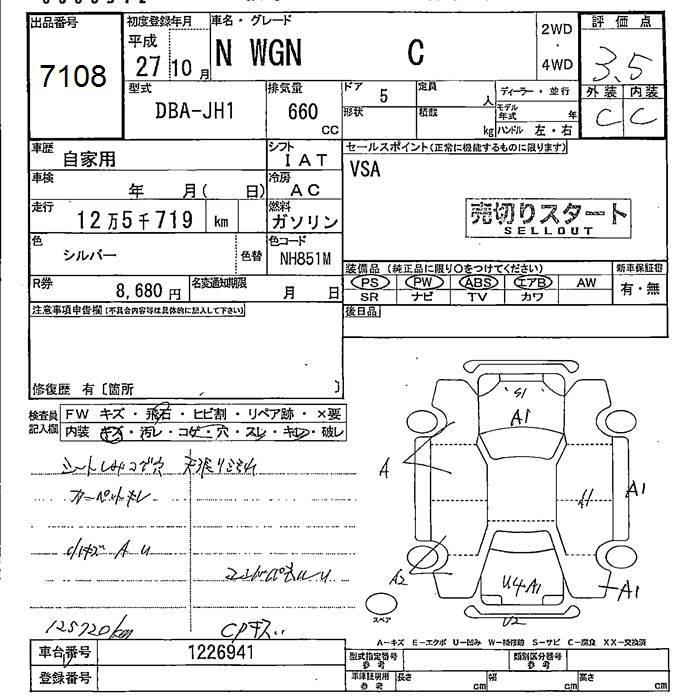 出品番号
7108
初度登録年月
平成
27年10月
車名・グレード
N WGN C
2WD
・
4WD
評価点
3.5
外装 内装
C C
型式
DBA-JH1
排気量
660
CC
ドア 5
形状
定員 人
積載 kg
ディーラー・並行
モデル年式 年
ハンドル 左・右
車歴
自家用
シフト
IAT
車検
年 月( 日)
冷房
AC
走行
12万5千719 km
燃料
ガソリン
色
シルバー
色替
色コード
NH851M
R券
8,680円
名変通知期限
月 日
セールスポイント(正常に機能するものに限ります)
VSA
売切りスタート
SELLOUT
装備品(純正品に限り○をつけてください)
PS PW ABS エアB AW
SR ナビ TV カワ
新車保証書
有・無
後日品
注意事項申告欄(不具合内容等は具体的に記入して下さい)
修復歴 有〔箇所 〕
検査員
記入欄
FW キズ・飛石・ヒビ割・リペア跡・×要
内装 キズ・汚レ・コゲ・穴・スレ・キレ・破レ
シートしみコゲ穴
カーペットキレ
小キズ A U
125720km
CPキズ
S1
A1
A
A1
A1
A2
U4A1
A1
U2
スペア
A-キズ E-エクボ U-凹み W-補修跡 S-サビ C-腐食 XX-交換済
車台番号
1226941
登録番号
型式指定番号
参考
類別区分番号
参考
車庫証明用
参考
長さ cm 幅 cm 高さ cm